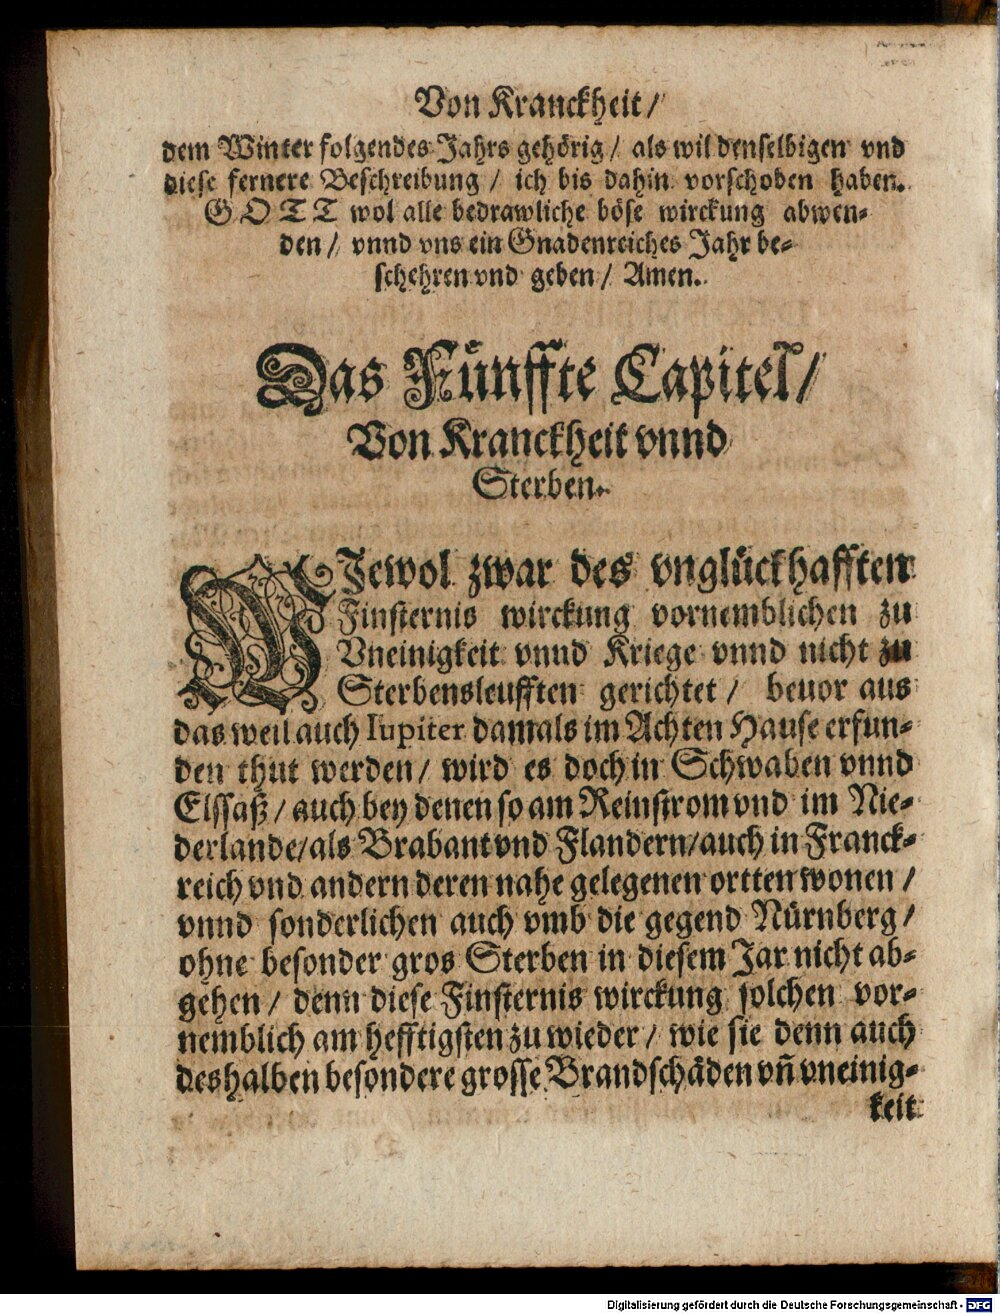 Von Kranckheit/
dem Winter folgendes Jahrs gehörig/ als wil denselbigen vnd
diese fernere Beschreibung / ich bis dahin vorschoben haben.
GOTT wol alle bedrawliche böse wirckung abwen-
den/ vnnd vns ein Gnadenreiches Jahr be-
schehren vnd geben/ Amen.
Das Fünffte Capitel/
Von Kranckheit vnnd
Sterben.
WJewol zwar des vnglückhafften
Finsternis wirckung vornemblichen zu
Vneinigkeit vnnd Kriege vnnd nicht zu
Sterbensleufften gerichtet/ beuor aus
das weil auch Iupiter damals im Achten Hause erfun-
den thut werden/ wird es doch in Schwaben vnnd
Elssaß/ auch bey denen so am Reinstrom vnd im Nie-
derlande/als Brabant vnd Flandern/auch in Franck-
reich vnd andern deren nahe gelegenen ortten wonen /
vnnd sonderlichen auch vmb die gegend Nürnberg/
ohne besonder gros Sterben in diesem Jar nicht ab-
gehen/ denn diese Finsternis wirckung solchen vor-
nemblich am hefftigsten zu wieder/ wie sie denn auch
deshalben besondere grosse Brandschäden vñ vneinig-
keit
Digitalisierung gefördert durch die Deutsche Forschungsgemeinschaft - DFG